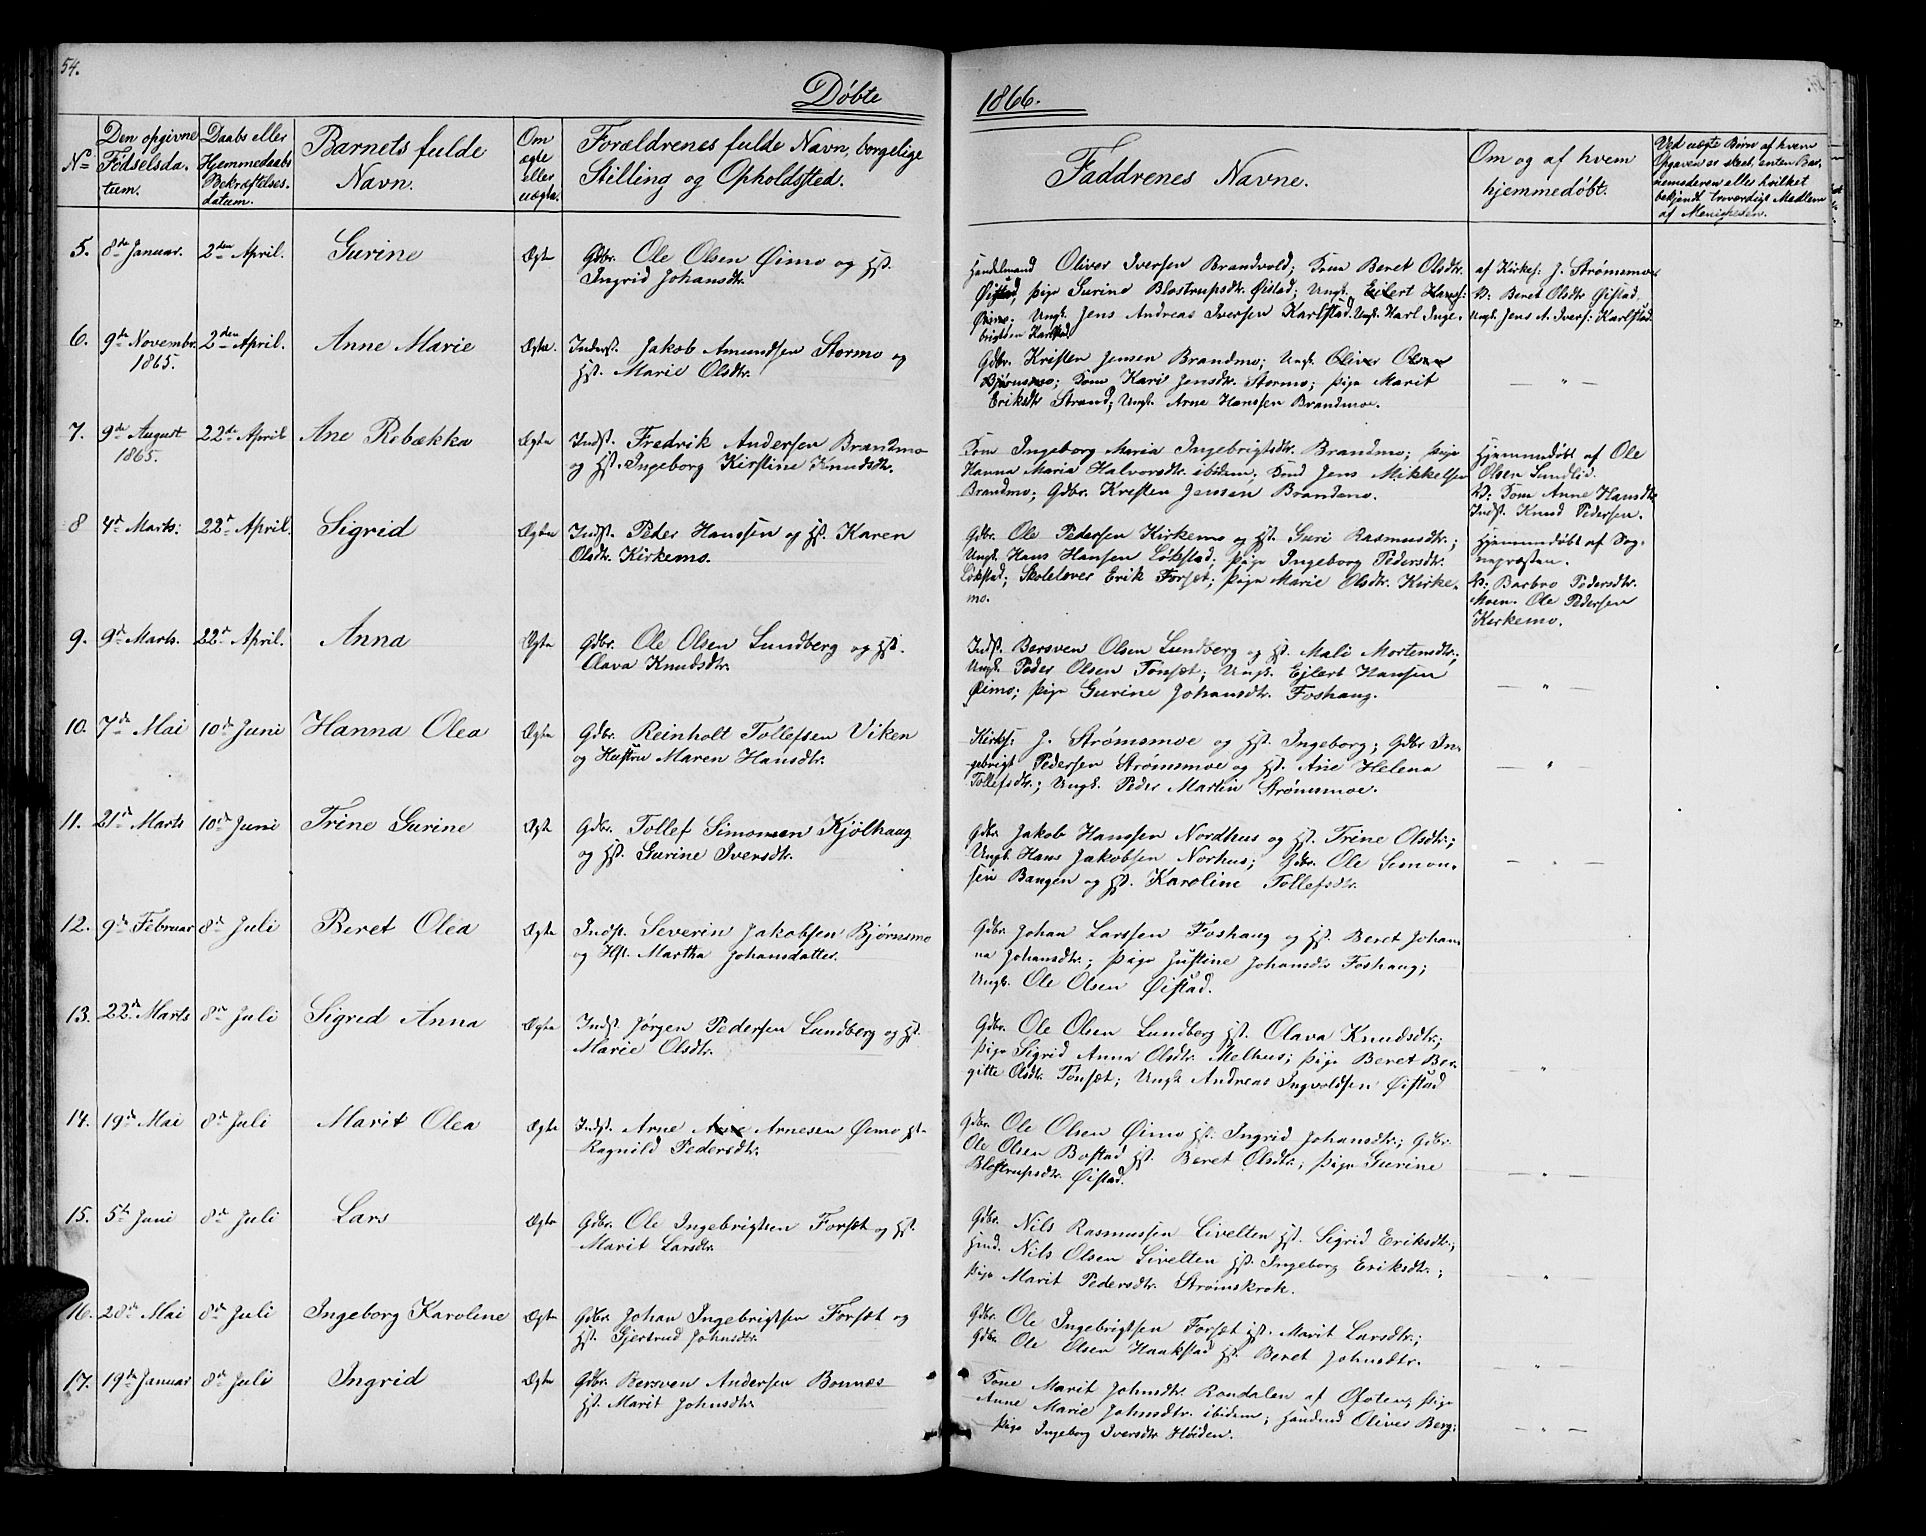 54.
Døbte
1866.
No
Den opgivne Fødselsdatum.
Daabs eller Hjemmedaabs Bekræftelsesdatum.
Barnets fulde Navn.
Om ægte eller uægte.
Forældrenes fulde Navn, borgelige Stilling og Opholdssted.
Faddrenes Navne.
Om og af hvem hjemmedøbt.
Ved uægte Børn af hvem Opgaven er skeet, enten Barnemoderen eller hvilket bekjendt troværdigt Medlem af Menigheden.
5. 8de Januar. 2den April. Gurine Ægte Gdbr. Ole Olsen Øimo og Hst.
Ingrid Johansdtr.
Handelmand Oliver Iversen Brandvold; Kone Beret Olsdtr.
Øistad; Pige Gurine Blostrupsdtr. Øistad; Ungk. Ejlert Hansf:
Øimo. Ungk. Jens Andreas Iversen Karlstad. Ungk. Karl Inge-
brigtsen Karlstad
af Kirkes: J. Strømsmoe
V: Beret Olsdtr Øistad.
Ungk. Jens A. Ivers: Karlstad.
6. 9de Novembr. 1865. 2den April. Anne Marie Ægte. Inderst. Jakob Amundsen Stormo og
Hst. Marie Olsdtr.
Gdbr. Kristen Jensen Brandmo; Ungk. Oliver Olsen
Bjørnsmo; Kone Kari Jensdtr. Stormo; Pige Marit
Eriksdtr Strand; Ungk. Arne Hanssen Brandmoe.
— " —
7. 9de August 1865. 22de April Ane Rebækka Ægte Indst. Fredrik Andersen Brandmo
og Hst. Ingeborg Kirstine Knudsdtr.
Kone Ingeborg Maria Ingebrigtsdtr. Brandmo; Pige
Hanna Maria Halvorsdtr. ibidem; Kond Jens Mikkelsen
Brandmo; Gdbr. Kristen Jenssen Brandmo.
Hjemmedøbt af Ole
Olsen Sundlid.
V: Kone Anne Hansdtr
Indst. Knud Pedersen.
8 4de Marts: 22de April. Sigrid Ægte Indst. Peder Hanssen og Hst. Karen
Olsdtr. Kirkemo.
Gdbr. Ole Pedersen Kirkemo og Hst. Guri Rasmusdtr.;
Ungk. Hans Hansen Løkstad; Pige Ingeborg Pedersdtr.
Løkstad; Skolelærer Erik Forsæt; Pige Marie Olsdtr. Kirke-
mo.
Hjemmedøbt af Sog-
nepræsten.
V: Barbro Pedersdtr.
Moen. Ole Pedersen
Kirkemo.
9. 9de Marts. 22de April. Anna Ægte Gdbr. Ole Olsen Lundberg og Hst.
Olava Knudsdtr.
Indst. Bersven Olsen Lundberg og Hst. Mali Mortensdtr.;
Ungk. Peder Olsen Tonsæt; Ungk. Ejlert Hansen
Øimo; Pige Gurine Johansdtr. Foshaug.
— " —
10. 7de Mai 10de Juni Hanna Olea Ægte Gdbr. Reinholt Tollefsen Viken
og Hustru Maren Hansdtr.
Kirks: J. Strømsmoe og Hst. Ingeborg; Gdbr In-
gebrigt Pedersen Strømsmoe og Hst. Ane Helena
Tollefsdtr.; Ungk. Peder Martin Strømsmoe.
— " —
11. 21de Marts 10de Juni Trine Gurine Ægte Gdbr. Tollef Simonsen Kjølhaug
og Hst. Gurine Iversdtr.
Gdbr. Jakob Hanssen Nordhus og Hst. Trine Olsdtr.;
Ungk. Hans Jakobsen Norhus; Gdbr. Ole Simon-
sen Bangen og Hst. Karoline Tollefsdtr.
— " —
12. 9de Februar 8de Juli Beret Olea Ægte Indst. Severin Jakobsen Bjørnsmo
og Hst. Martha Johansdatter.
Gdbr. Johan Larssen Foshaug og Hst. Beret Johan-
na Johansdtr.; Pige Justine Johansdtr Foshaug;
Ungk. Ole Olsen Øistad.
13. 22de Marts 8de Juli Sigrid Anna Ægte Indst. Jørgen Pedersen Lundberg og Hst.
Marie Olsdtr.
Gdbr. Ole Olsen Lundberg Hst. Olava Knudsdtr.;
Pige Sigrid Anna Olsdtr. Melhus; Pige Beret Ber-
gitte Olsdtr. Tonsæt; Ungk Andreas Ingvoldsen Øistad
— " —
14. 19de Mai 8de Juli Marit Olea Ægte Indst. Arne Arne Arnesen Øimo Hst.
Ragnild Pedersdtr.
Gdbr. Ole Olsen Øimo Hst. Ingrid Johansdtr.; Gdbr.
Ole Olsen Bostad Hst. Beret Olsdtr.; Pige Gurine
Blostrupsdtr. Øistad.
— " —
15. 5te Juni 8de Juli Lars Ægte Gdbr. Ole Ingebrigtsen Forsæt og Hst.
Marit Larsdtr.
Gdbr. Nils Rasmussen Livelten Hst. Sigrid Eriksdtr.;
Hmd. Nils Olsen Livelten Hst. Ingeborg Eriksdtr.;
Pige Marit Pedersdtr. Strømskrok.
— " —
16. 28de Mai 8de Juli Ingeborg Karoline Ægte Gdbr. Johan Ingebrigtsen Forsæt og
Hst. Gjertrud Johnsdtr.
Gdbr. Ole Ingebrigtsen Forsæt Hst. Marit Larsdtr.;
Gdbr. Ole Olsen Haakstad Hst. Beret Johnsdtr.
— " —
17. 19de Januar 8de Juli Ingrid Ægte Gdbr. Bersven Andersen Bonnes
Hst. Marit Johnsdtr.
Kone Marit Johnsdtr. Rondalen af Ofoten; Pige
Anne Marie Johnsdtr. ibidem; Handmd Oliver Berg;
Pige Ingeborg Iversdtr Høiden.
— " —